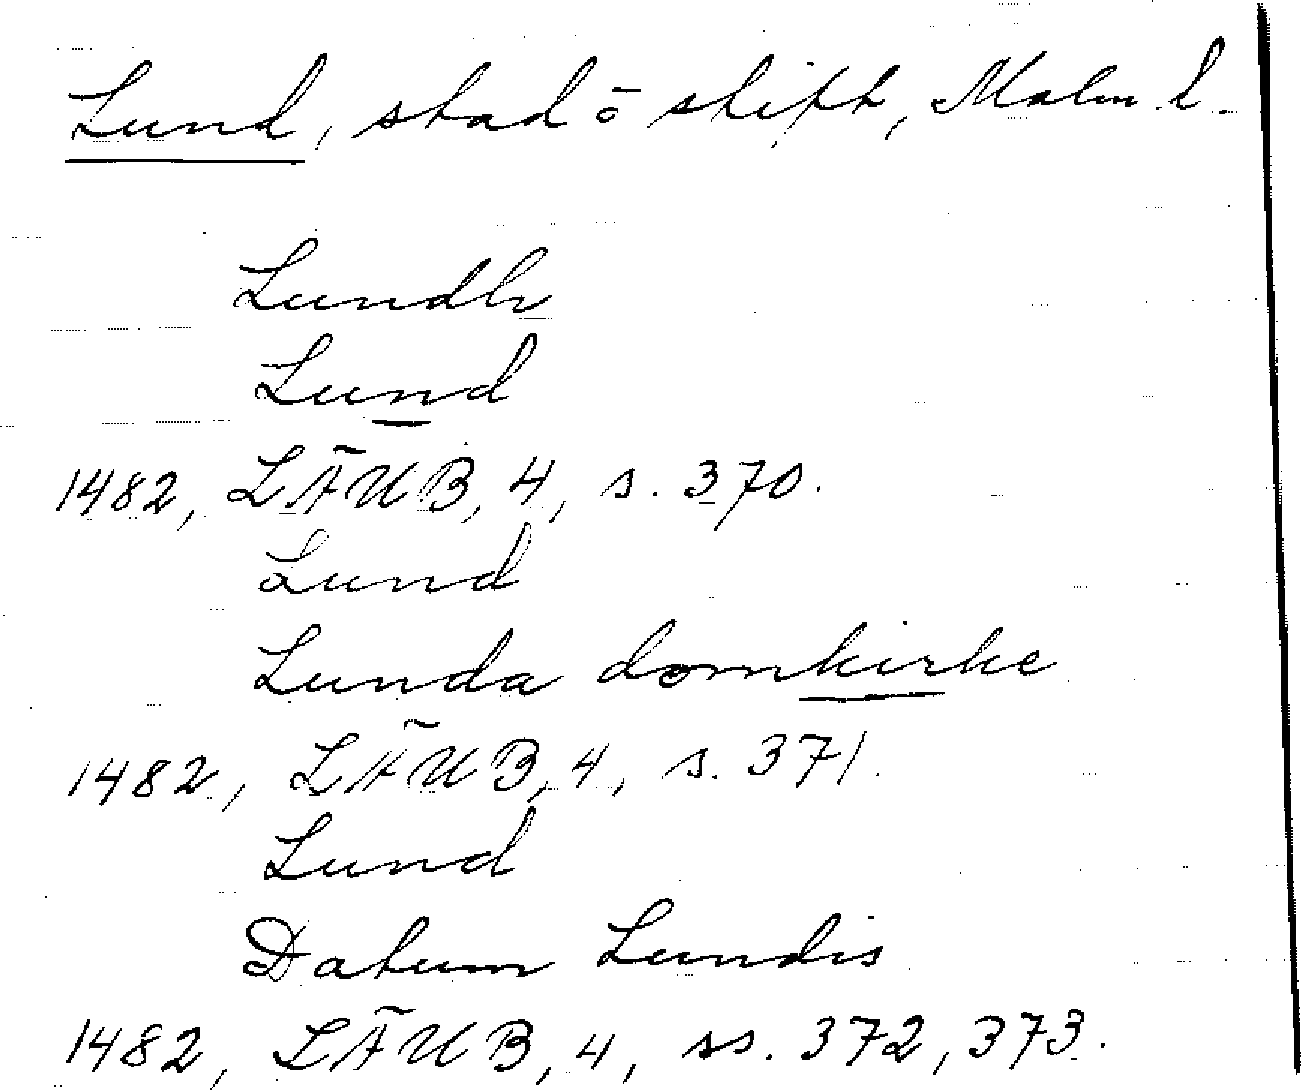 Lund, stad o stift, Malm. l.
Lundh
Lund
1482, LÄUB, 4, s. 370.
Lund
Lunda domkirke
1482, LÄUB, 4, s. 371.
Lund
Datum Lundis
1482, LÄUB, 4, ss. 372, 373.